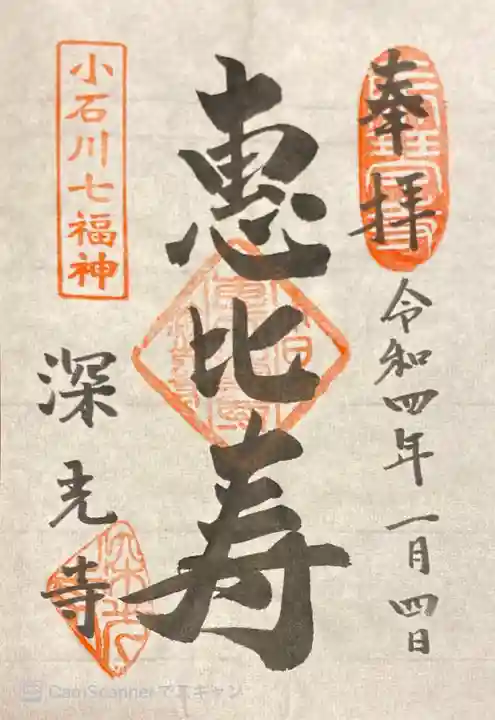 奉拝
令和四年一月四日
恵比寿
小石川七福神
深光寺
CamScannerでスキャン